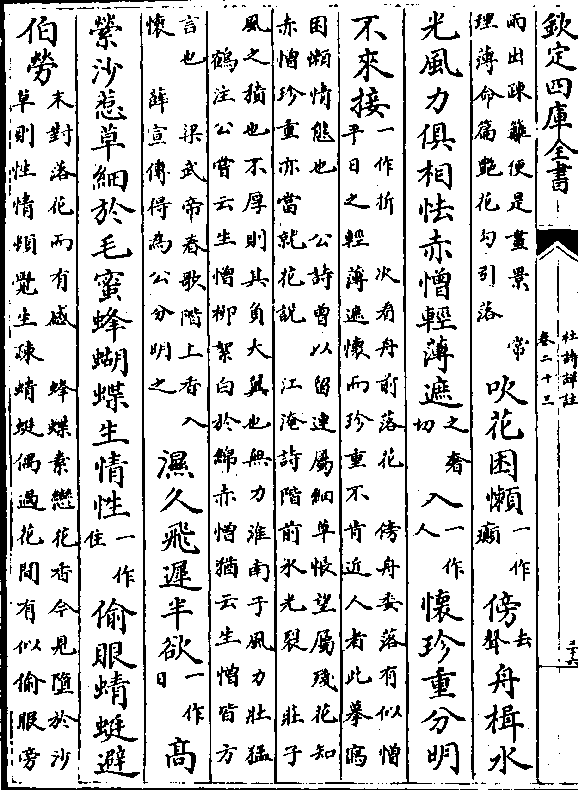 欽定四庫全書
杜詩詳註
卷二十三
而出疎籬便是畫景　常
理薄命篇艶花勾引落
吹花困懶
一作
癲
傍
去
聲
舟楫水
光風力俱相怯赤憎輕薄遮
之奢
切
入
一作
人
懷珍重分明
不來接
一作折　次看舟前落花　傍舟委落有似憎
平日之輕薄遮懐而珍重不肯近人者此摹寫
困懶情態也　公詩曽以留連屬細草悵望屬殘花知
赤憎珍重亦當就花説　江淹詩階前水光裂　莊子
風之積也不厚則其負大翼也無力淮南子風力壯猛
鶴注公嘗云生憎柳絮白於綿赤憎猶云生憎皆方
言也　梁武帝春歌階上香入
懐　薛宣傳得為公分明之
濕久飛遲半欲
一作
日
髙
縈沙惹草細於毛蜜蜂蝴蝶生情性
一作
住
偷眼蜻蜓避
伯勞
末對落花而有感　蜂蝶素戀花香今見墮於沙
草則性情頻覺生疎蜻蜓偶過花間有似偷眼旁